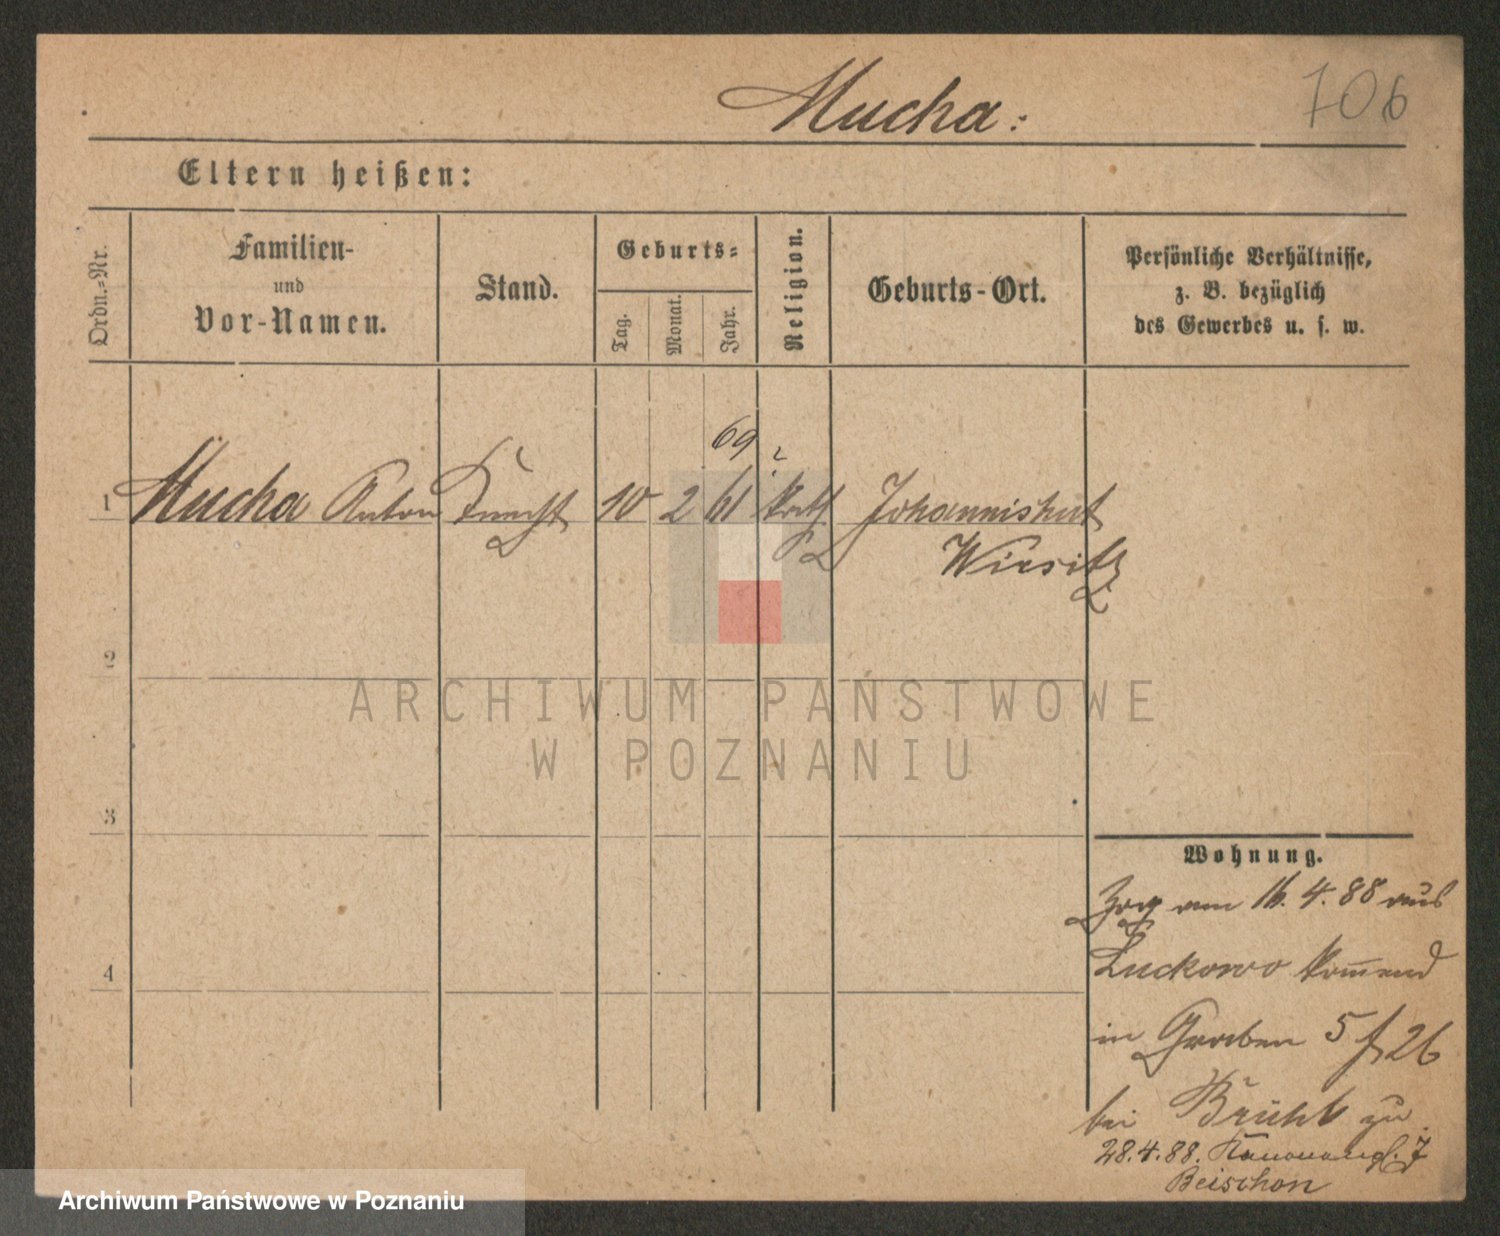 Mucha:
706
Eltern heißen:
Ordn.-Nr.
Familien-
und
Vor-Namen.
Stand.
Geburts-
Tag.
Monat.
Jahr.
Religion.
Geburts-Ort.
Persönliche Verhältnisse,
z. B. bezüglich
des Gewerbes u. s. w.
69 ?
1 Mucha Anton Knecht 10 2 61 kath Johannis
Wirsitz
2
3
4
ARCHIWUM PAŃSTWOWE
W POZNANIU
Wohnung.
Zog am 16. 4. 88 aus
Luckowo komend
in Graben 5 26
bei Brühl zu
28.4.88. 7
Beischon
Archiwum Państwowe w Poznaniu